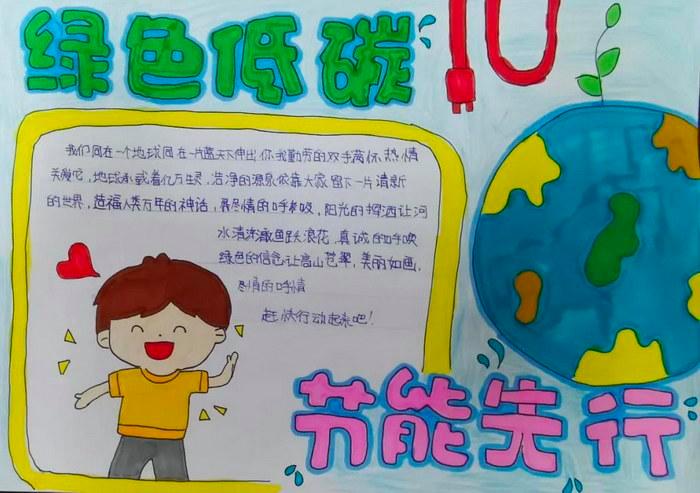 绿色低碳
我们同在一个地球同在一片蓝天下伸出你我勤劳的双手满怀热情
关爱它,地球承载着亿万生灵,洁净的源泉依靠大家留下一片清新
的世界,造福人类万年的神话,尽情的呼吸,阳光的挥洒让河
水清洁鱼跃浪花,真诚的呼唤
绿色的信念让高山苍翠,美丽如画,
尽情的呼
赶快行动起来吧!
节能先行